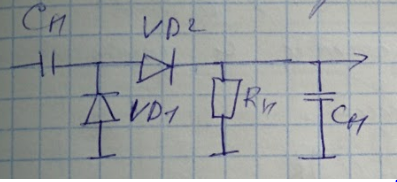 Cн
VD2
VD1
Rн
Cн